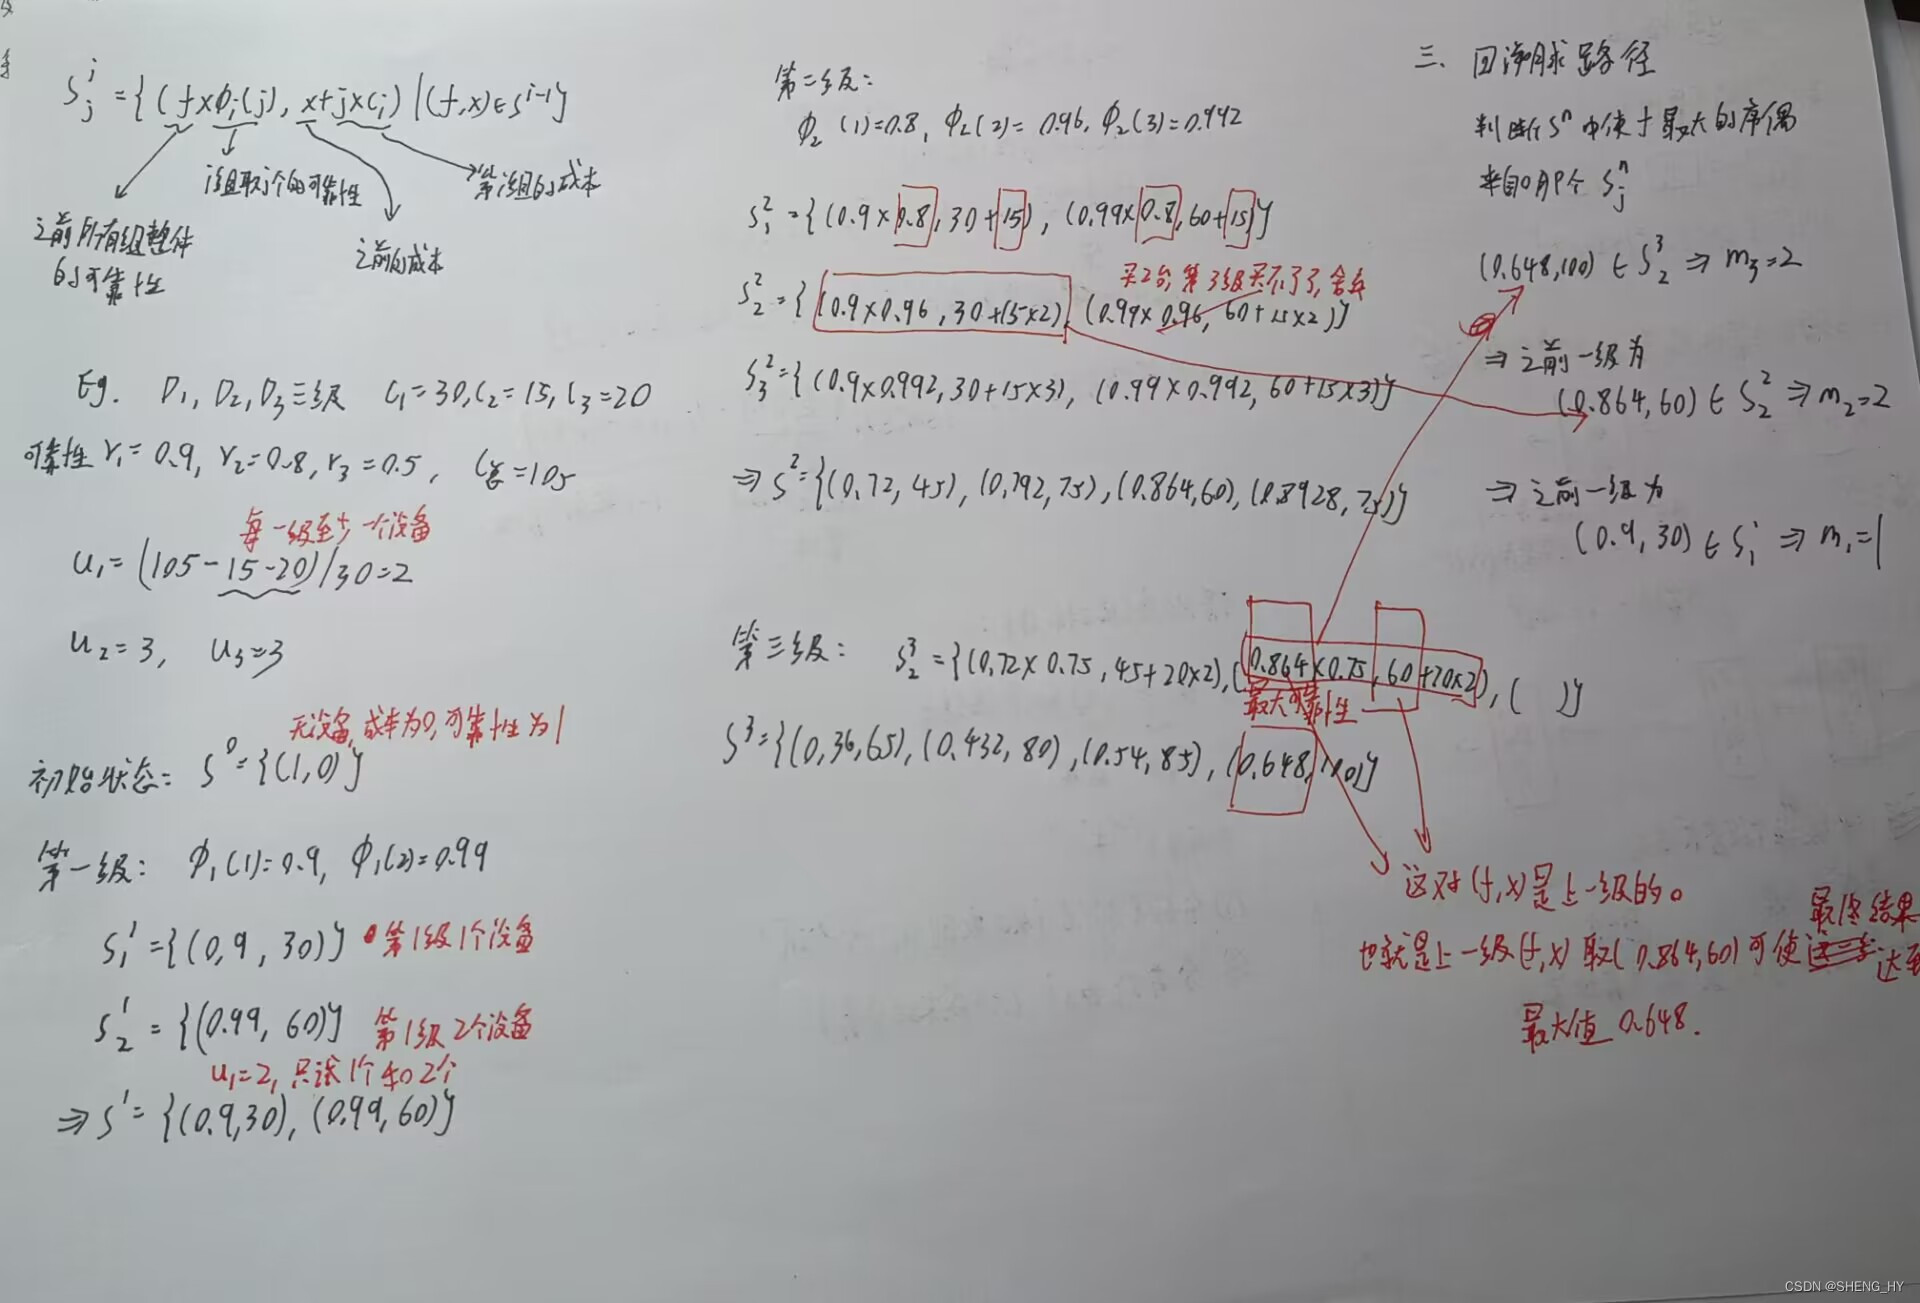 S_j^i = { (f×φi(j), x+j×ci) | (f,x)∈S^{i-1} }
i组取j个的可靠性
第i组的成本
之前所有组整体
的可靠性
之前的成本
Eg. D₁, D₂, D₃三级 C₁=30, C₂=15, C₃=20
可靠性 r₁=0.9, r₂=0.8, r₃=0.5, C总=105
每一级至少一个设备
u₁=(105-15-20)/30=2
u₂=3, u₃=3
无设备,成本为0,可靠性为1
初始状态: S⁰={(1,0)}
第一级: φ₁(1)=0.9, φ₁(2)=0.99
S₁¹={(0.9, 30)} 第1级1个设备
S₂¹={(0.99, 60)} 第1级2个设备
u₁=2, 只试1个和2个
⇒ S¹={(0.9,30), (0.99,60)}
第二级:
φ₂(1)=0.8, φ₂(2)=0.96, φ₂(3)=0.992
S₁²={(0.9×0.8, 30+15), (0.99×0.8, 60+15)}
买2台,第3级买不了了,舍弃
S₂²={(0.9×0.96, 30+15×2), (0.99×0.96, 60+15×2)}
S₃²={(0.9×0.992, 30+15×3), (0.99×0.992, 60+15×3)}
⇒ S²={(0.72, 45), (0.792, 75), (0.864,60), (0.8928, 75)}
第三级: S₂³={(0.72×0.75, 45+20×2), (0.864×0.75, 60+20×2), ( )}
最大可靠性
S³={(0.36,65), (0.432, 80), (0.54, 85), (0.648,100)}
三、回溯求路径
判断Sⁿ中使f最大的序偶
来自哪个 S_j^n
(0.648,100)∈S₂³ ⇒ m₃=2
⇒ 之前一级为
(0.864,60)∈S₂² ⇒ m₂=2
⇒ 之前一级为
(0.9, 30)∈S₁¹ ⇒ m₁=1
这对(f,x)是上一级的。
最终结果
也就是上一级(f,x)取(0.864,60)可使 达到
最大值 0.648.
CSDN @SHENG_HY